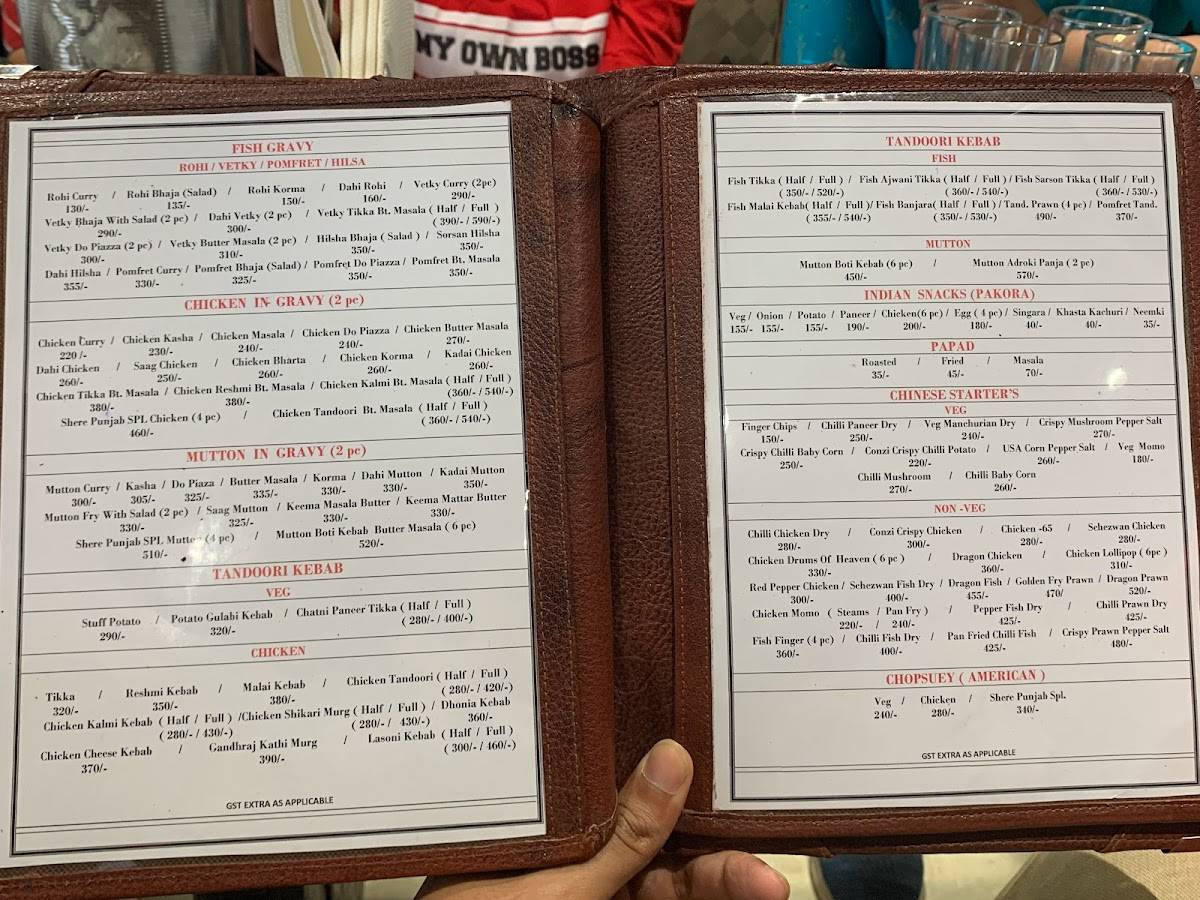 MY OWN BOSS
FISH GRAVY
ROHI / VETKY / POMFRET / HILSA
Rohi Curry / Rohi Bhaja (Salad) / Rohi Korma / Dahi Rohi / Vetky Curry (2pc)
130/- 135/- 150/- 160/- 290/-
Vetky Bhaja With Salad (2 pc) / Dahi Vetky (2 pc) / Vetky Tikka Bt. Masala ( Half / Full )
290/- 300/- ( 390/- / 590/-)
Vetky Do Piazza (2 pc) / Vetky Butter Masala (2 pc) / Hilsha Bhaja ( Salad ) / Sorsan Hilsha
300/- 310/- 350/- 350/-
Dahi Hilsha / Pomfret Curry / Pomfret Bhaja (Salad) / Pomfret Do Piazza / Pomfret Bt. Masala
355/- 330/- 325/- 350/- 350/-
CHICKEN IN GRAVY (2 pc)
Chicken Curry / Chicken Kasha / Chicken Masala / Chicken Do Piazza / Chicken Butter Masala
220 /- 230/- 240/- 240/- 270/-
Dahi Chicken / Saag Chicken / Chicken Bharta / Chicken Korma / Kadai Chicken
260/- 250/- 260/- 260/- 260/-
Chicken Tikka Bt. Masala / Chicken Reshmi Bt. Masala / Chicken Kalmi Bt. Masala ( Half / Full )
380/- 380/- (360/- / 540/-)
Shere Punjab SPL Chicken (4 pc) / Chicken Tandoori Bt. Masala ( Half / Full )
460/- ( 360/- / 540/-)
MUTTON IN GRAVY (2 pc)
Mutton Curry / Kasha / Do Piaza / Butter Masala / Korma / Dahi Mutton / Kadai Mutton
300/- 305/- 325/- 335/- 330/- 330/- 350/-
Mutton Fry With Salad (2 pc) / Saag Mutton / Keema Masala Butter / Keema Mattar Butter
330/- 325/- 330/- 330/-
Shere Punjab SPL Mutton (4 pc) / Mutton Boti Kebab Butter Masala ( 6 pc)
510/- 520/-
TANDOORI KEBAB
VEG
Stuff Potato / Potato Gulabi Kebab / Chatni Paneer Tikka ( Half / Full )
290/- 320/- ( 280/- / 400/-)
CHICKEN
Tikka / Reshmi Kebab / Malai Kebab / Chicken Tandoori ( Half / Full )
320/- 350/- 380/- ( 280/- / 420/-)
Chicken Kalmi Kebab ( Half / Full ) /Chicken Shikari Murg ( Half / Full ) / Dhonia Kebab
( 280/- / 430/-) ( 280/- / 430/-) 360/-
Chicken Cheese Kebab / Gandhraj Kathi Murg / Lasoni Kebab ( Half / Full )
370/- 390/- ( 300/- / 460/-)
GST EXTRA AS APPLICABLE
TANDOORI KEBAB
FISH
Fish Tikka ( Half / Full ) / Fish Ajwani Tikka ( Half / Full ) / Fish Sarson Tikka ( Half / Full )
( 350/- / 520/-) ( 360/- / 540/-) ( 360/- / 530/-)
Fish Malai Kebab( Half / Full )/ Fish Banjara( Half / Full ) / Tand. Prawn (4 pc) / Pomfret Tand.
( 355/- / 540/-) ( 350/- / 530/-) 490/- 370/-
MUTTON
Mutton Boti Kebab (6 pc) / Mutton Adroki Panja ( 2 pc)
450/- 570/-
INDIAN SNACKS (PAKORA)
Veg / Onion / Potato / Paneer / Chicken(6 pc) / Egg ( 4 pc) / Singara / Khasta Kachuri / Neemki
155/- 155/- 155/- 190/- 200/- 180/- 40/- 40/- 35/-
PAPAD
Roasted / Fried / Masala
35/- 45/- 70/-
CHINESE STARTER'S
VEG
Finger Chips / Chilli Paneer Dry / Veg Manchurian Dry / Crispy Mushroom Pepper Salt
150/- 250/- 240/- 270/-
Crispy Chilli Baby Corn / Conzi Crispy Chilli Potato / USA Corn Pepper Salt / Veg Momo
250/- 220/- 260/- 180/-
Chilli Mushroom / Chilli Baby Corn
270/- 260/-
NON -VEG
Chilli Chicken Dry / Conzi Crispy Chicken / Chicken -65 / Schezwan Chicken
280/- 300/- 280/- 280/-
Chicken Drums Of Heaven ( 6 pc ) / Dragon Chicken / Chicken Lollipop ( 6pc )
330/- 360/- 310/-
Red Pepper Chicken / Schezwan Fish Dry / Dragon Fish / Golden Fry Prawn / Dragon Prawn
300/- 400/- 455/- 470/ 520/-
Chicken Momo ( Steams / Pan Fry ) / Pepper Fish Dry / Chilli Prawn Dry
220/- / 240/- 425/- 425/-
Fish Finger (4 pc) / Chilli Fish Dry / Pan Fried Chilli Fish / Crispy Prawn Pepper Salt
360/- 400/- 425/- 480/-
CHOPSUEY ( AMERICAN )
Veg / Chicken / Shere Punjab Spl.
240/- 280/- 340/-
GST EXTRA AS APPLICABLE